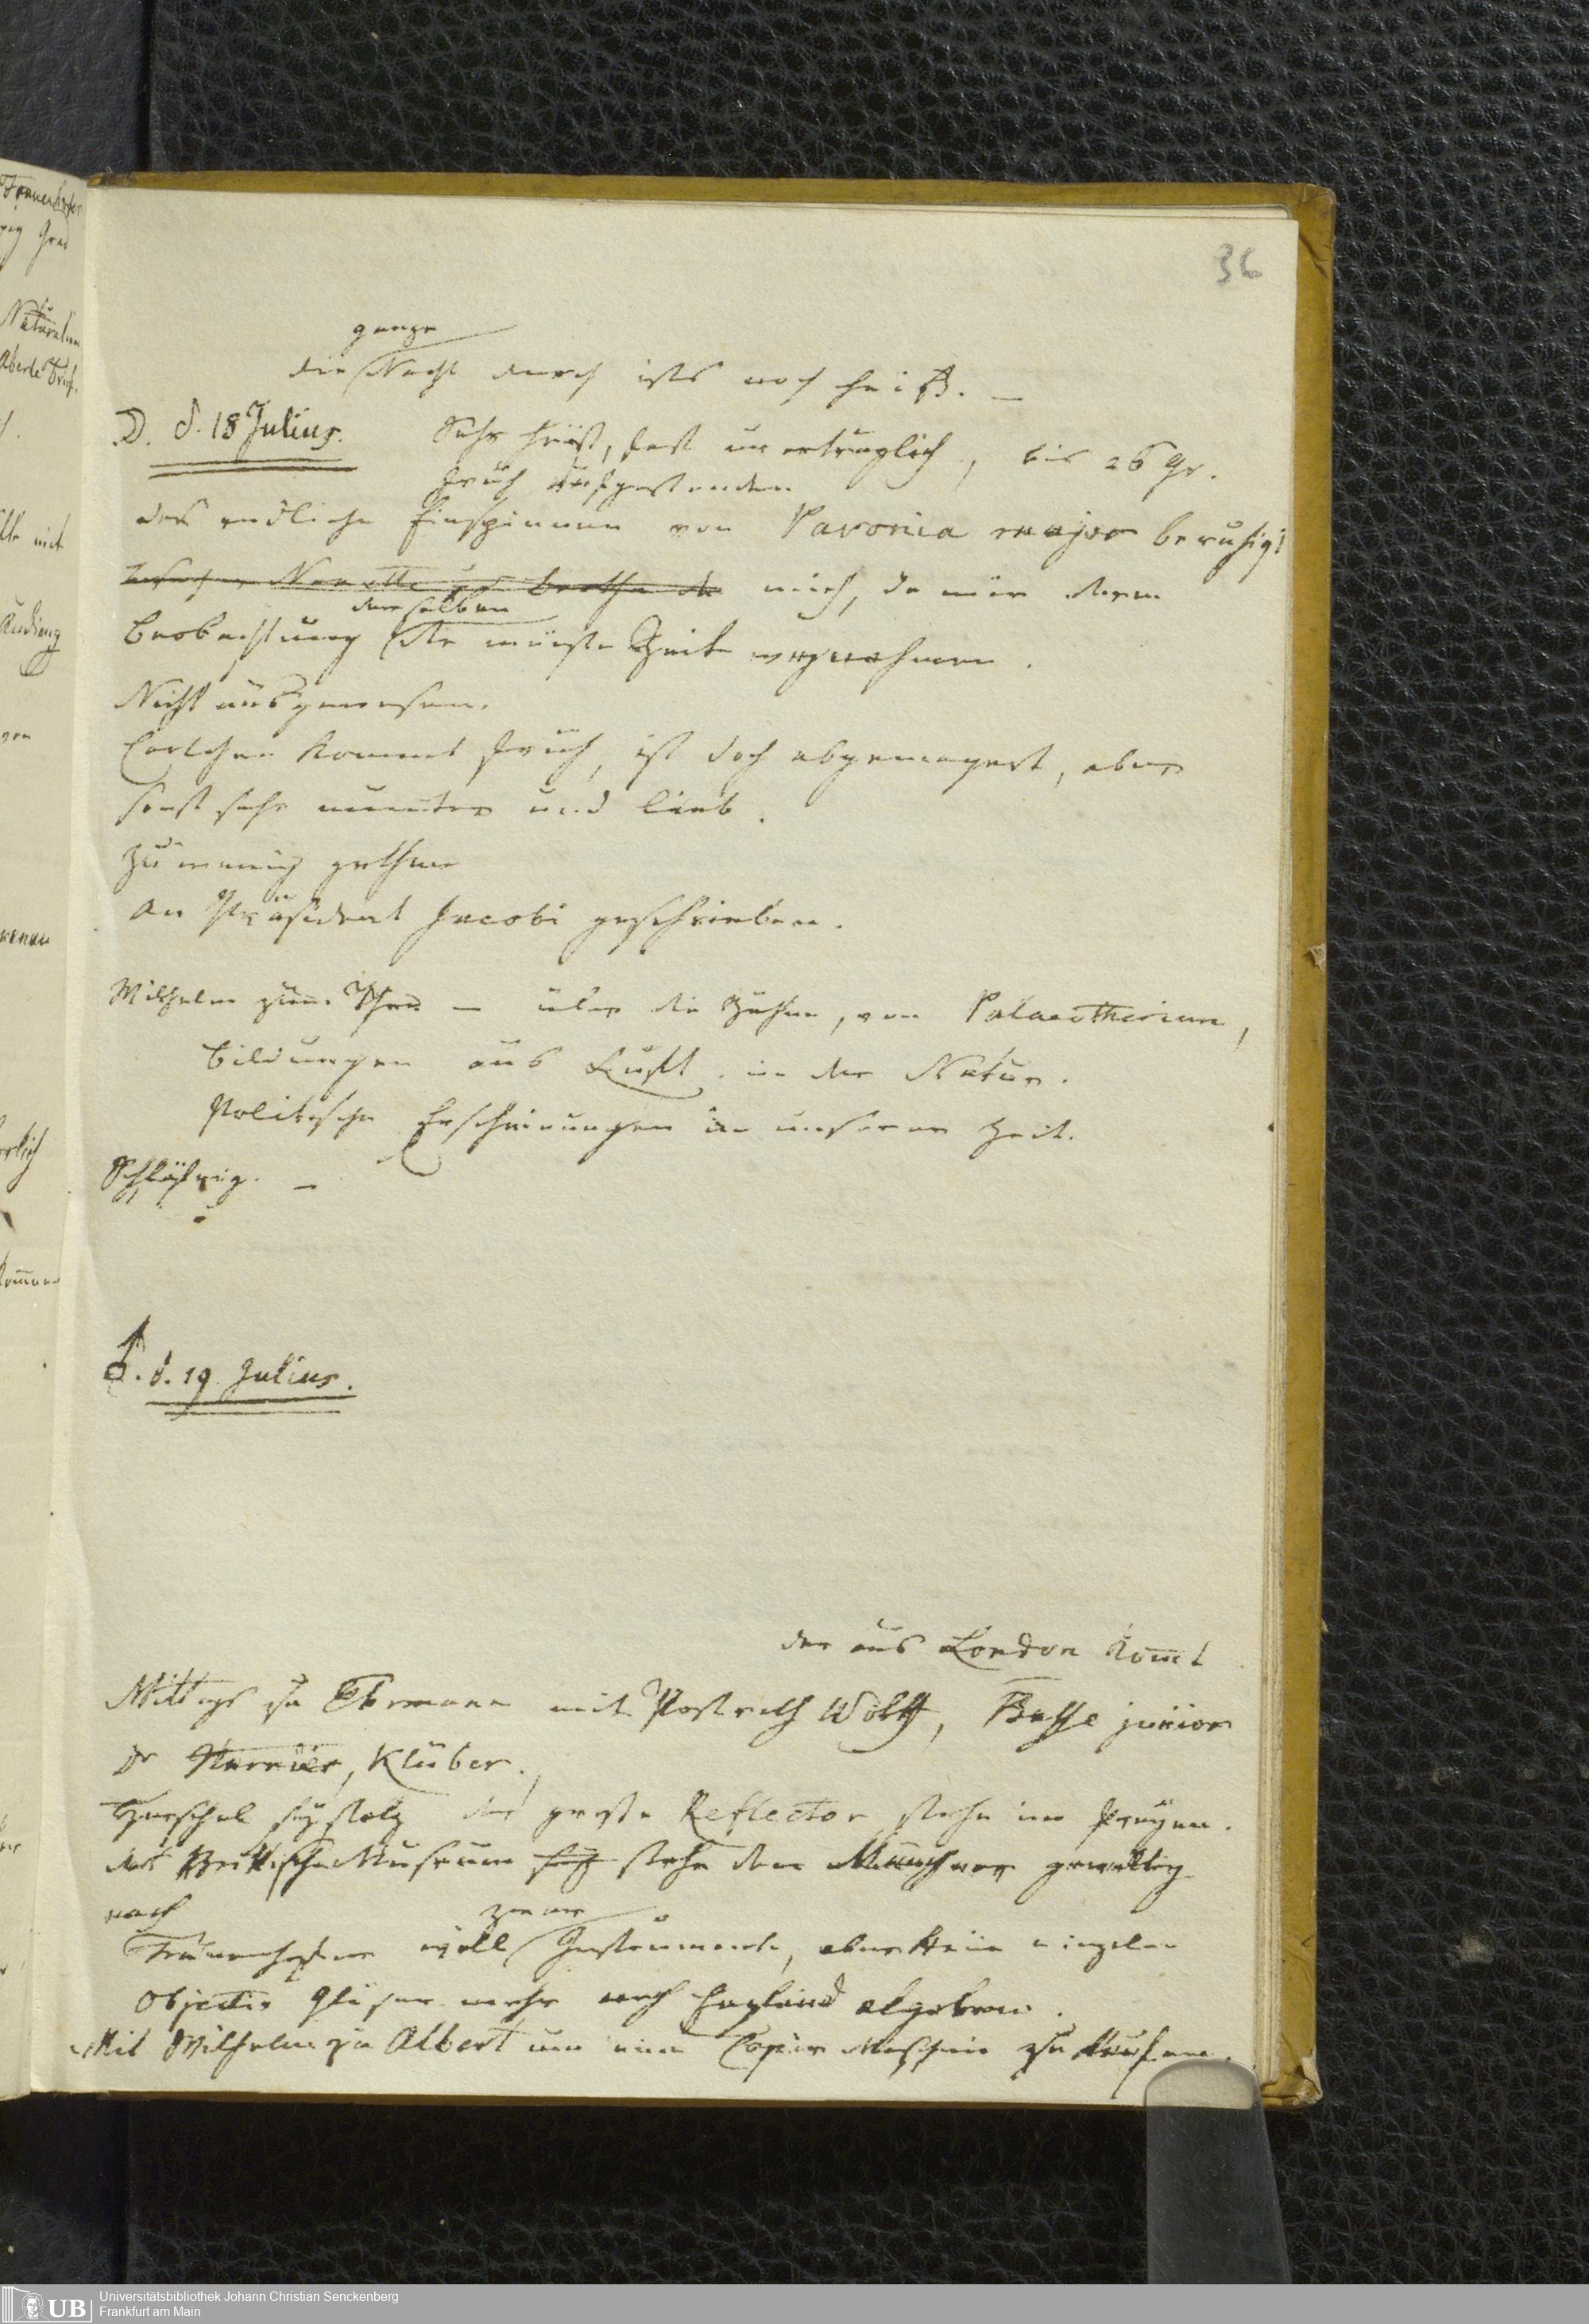 36
ganze
die Nacht durch ists noch heiß. —
D. d. 18 Julius. Sehr heiß, fast unerträglich, bis 26 Gr.
früh aufgestanden
das endliche Einspinnen von Pavonia major beruhigt
mich, da mir deren
derselben
Beobachtung die meiste Zeit wegnehmen.
Nicht ausgewesen.
Carlchen kommt früh, ist doch abgemagert, aber
sonst sehr munter und lieb.
zu wenig gethan
An Präsident Jacobi geschrieben.
Wilhelm zum Thee — über die Zähne, von Palaeotherium,
Bildungen aus Luft in der Natur.
Politische Erscheinungen in unserer Zeit.
Schläfrig. —
♂. d. 19 Julius.
der aus London kommt
Mittags zu Ehrmann mit Postrath Wolff, Basse junior
Dr, Klüber.
Herschel sey stolz der große Reflector stehe im Freyen.
das Brittische Museum sey stehe dem Münchner gewaltig
nach
Frauenhofer woll Instrumente, aber keine einzelne
Objectiv Gläser mehr nach England abgeben.
Mit Wilhelm zu Albert um eine Copir Maschine zu kaufen.
UB
Universitätsbibliothek Johann Christian Senckenberg
Frankfurt am Main